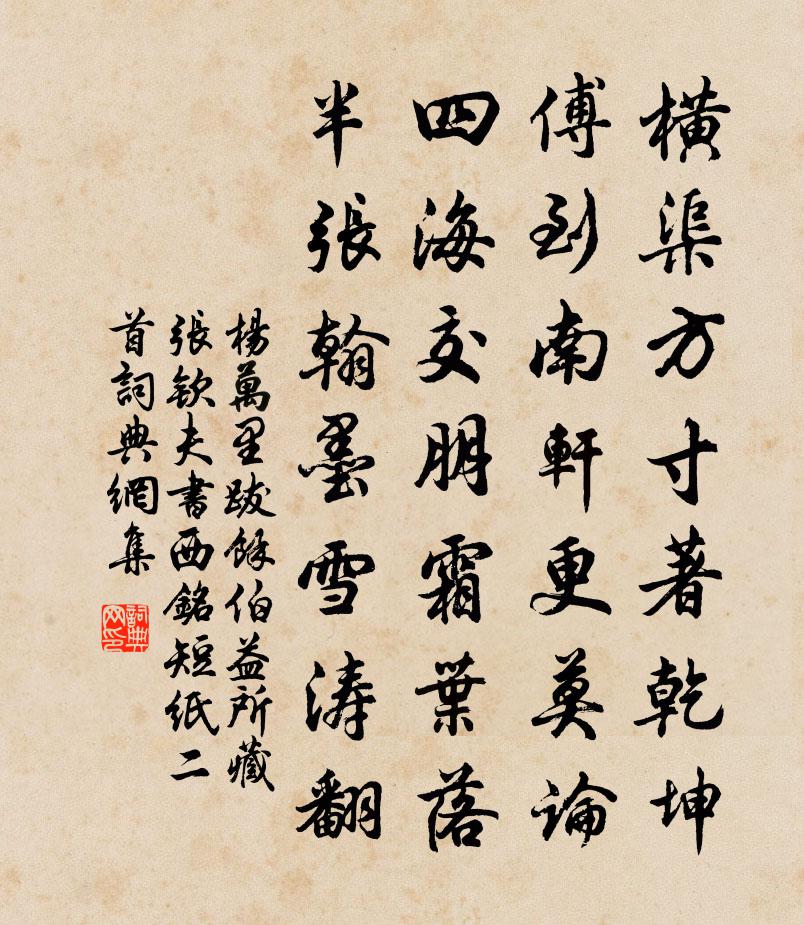 橫渠方寸著乾坤
傅到南軒更莫論
四海交朋霜葉落
半張翰墨雪濤翻
楊萬里跋餘伯益所藏
張欽夫書西銘短紙二
首詞典網集
詞典
网印